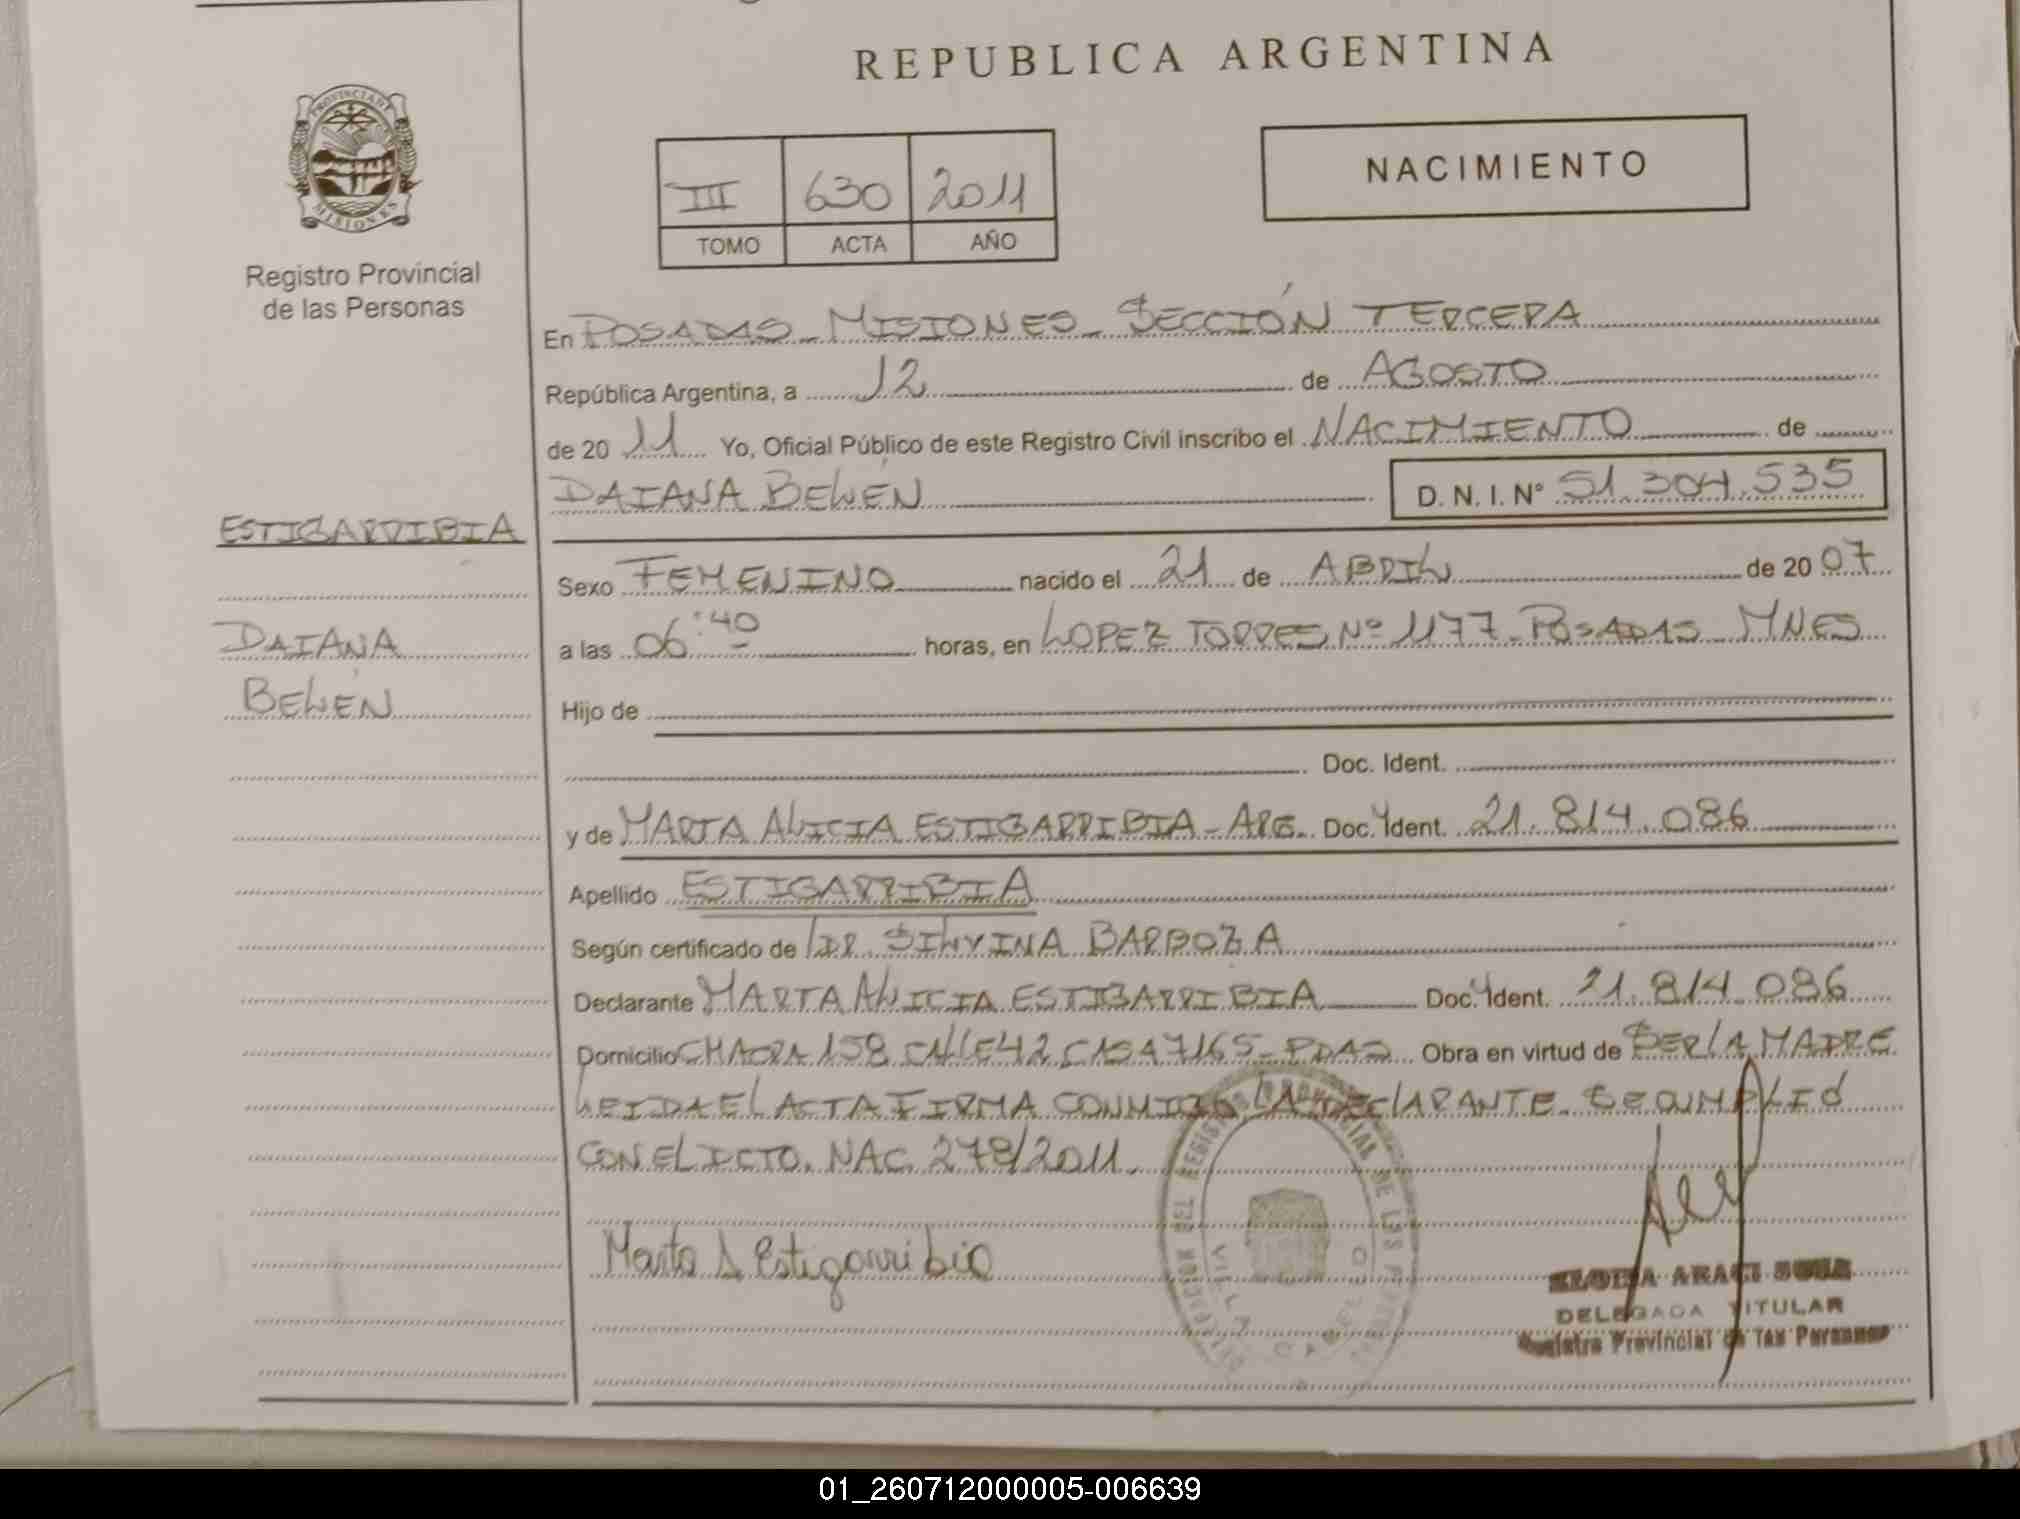 REPUBLICA ARGENTINA
PROVINCIA
MISIONES
Registro Provincial
de las Personas
III 630 2011
TOMO ACTA AÑO
NACIMIENTO
En POSADAS - MISIONES - SECCIÓN TERCERA
República Argentina, a 12 de AGOSTO
de 20 11 Yo, Oficial Público de este Registro Civil inscribo el NACIMIENTO de
DAIANA BELÉN D. N. I. Nº 51.304.535
ESTIGARRIBIA
DAIANA
BELÉN
Sexo FEMENINO nacido el 21 de ABRIL de 20 07
a las 06:40 horas, en LOPEZ TORRES Nº 1177 - POSADAS - MNES
Hijo de
Doc. Ident.
y de MARTA ALICIA ESTIGARRIBIA - ARG. Doc. Ident. 21.814.086
Apellido ESTIGARRIBIA
Según certificado de DR. SILVINA BARBOZA
Declarante MARTA ALICIA ESTIGARRIBIA Doc. Ident. 21.814.086
Domicilio CHACRA 158 CALLE 42 CASA 7165 - PDAS Obra en virtud de SER LA MADRE
LEIDA EL ACTA FIRMA CONMIGO LA DECLARANTE. SE CUMPLIÓ
CON EL DCTO. NAC. 278/2011.
Marta A Estigarribia
DELEGADA TITULAR
Registro Provincial de las Personas
01_260712000005-006639